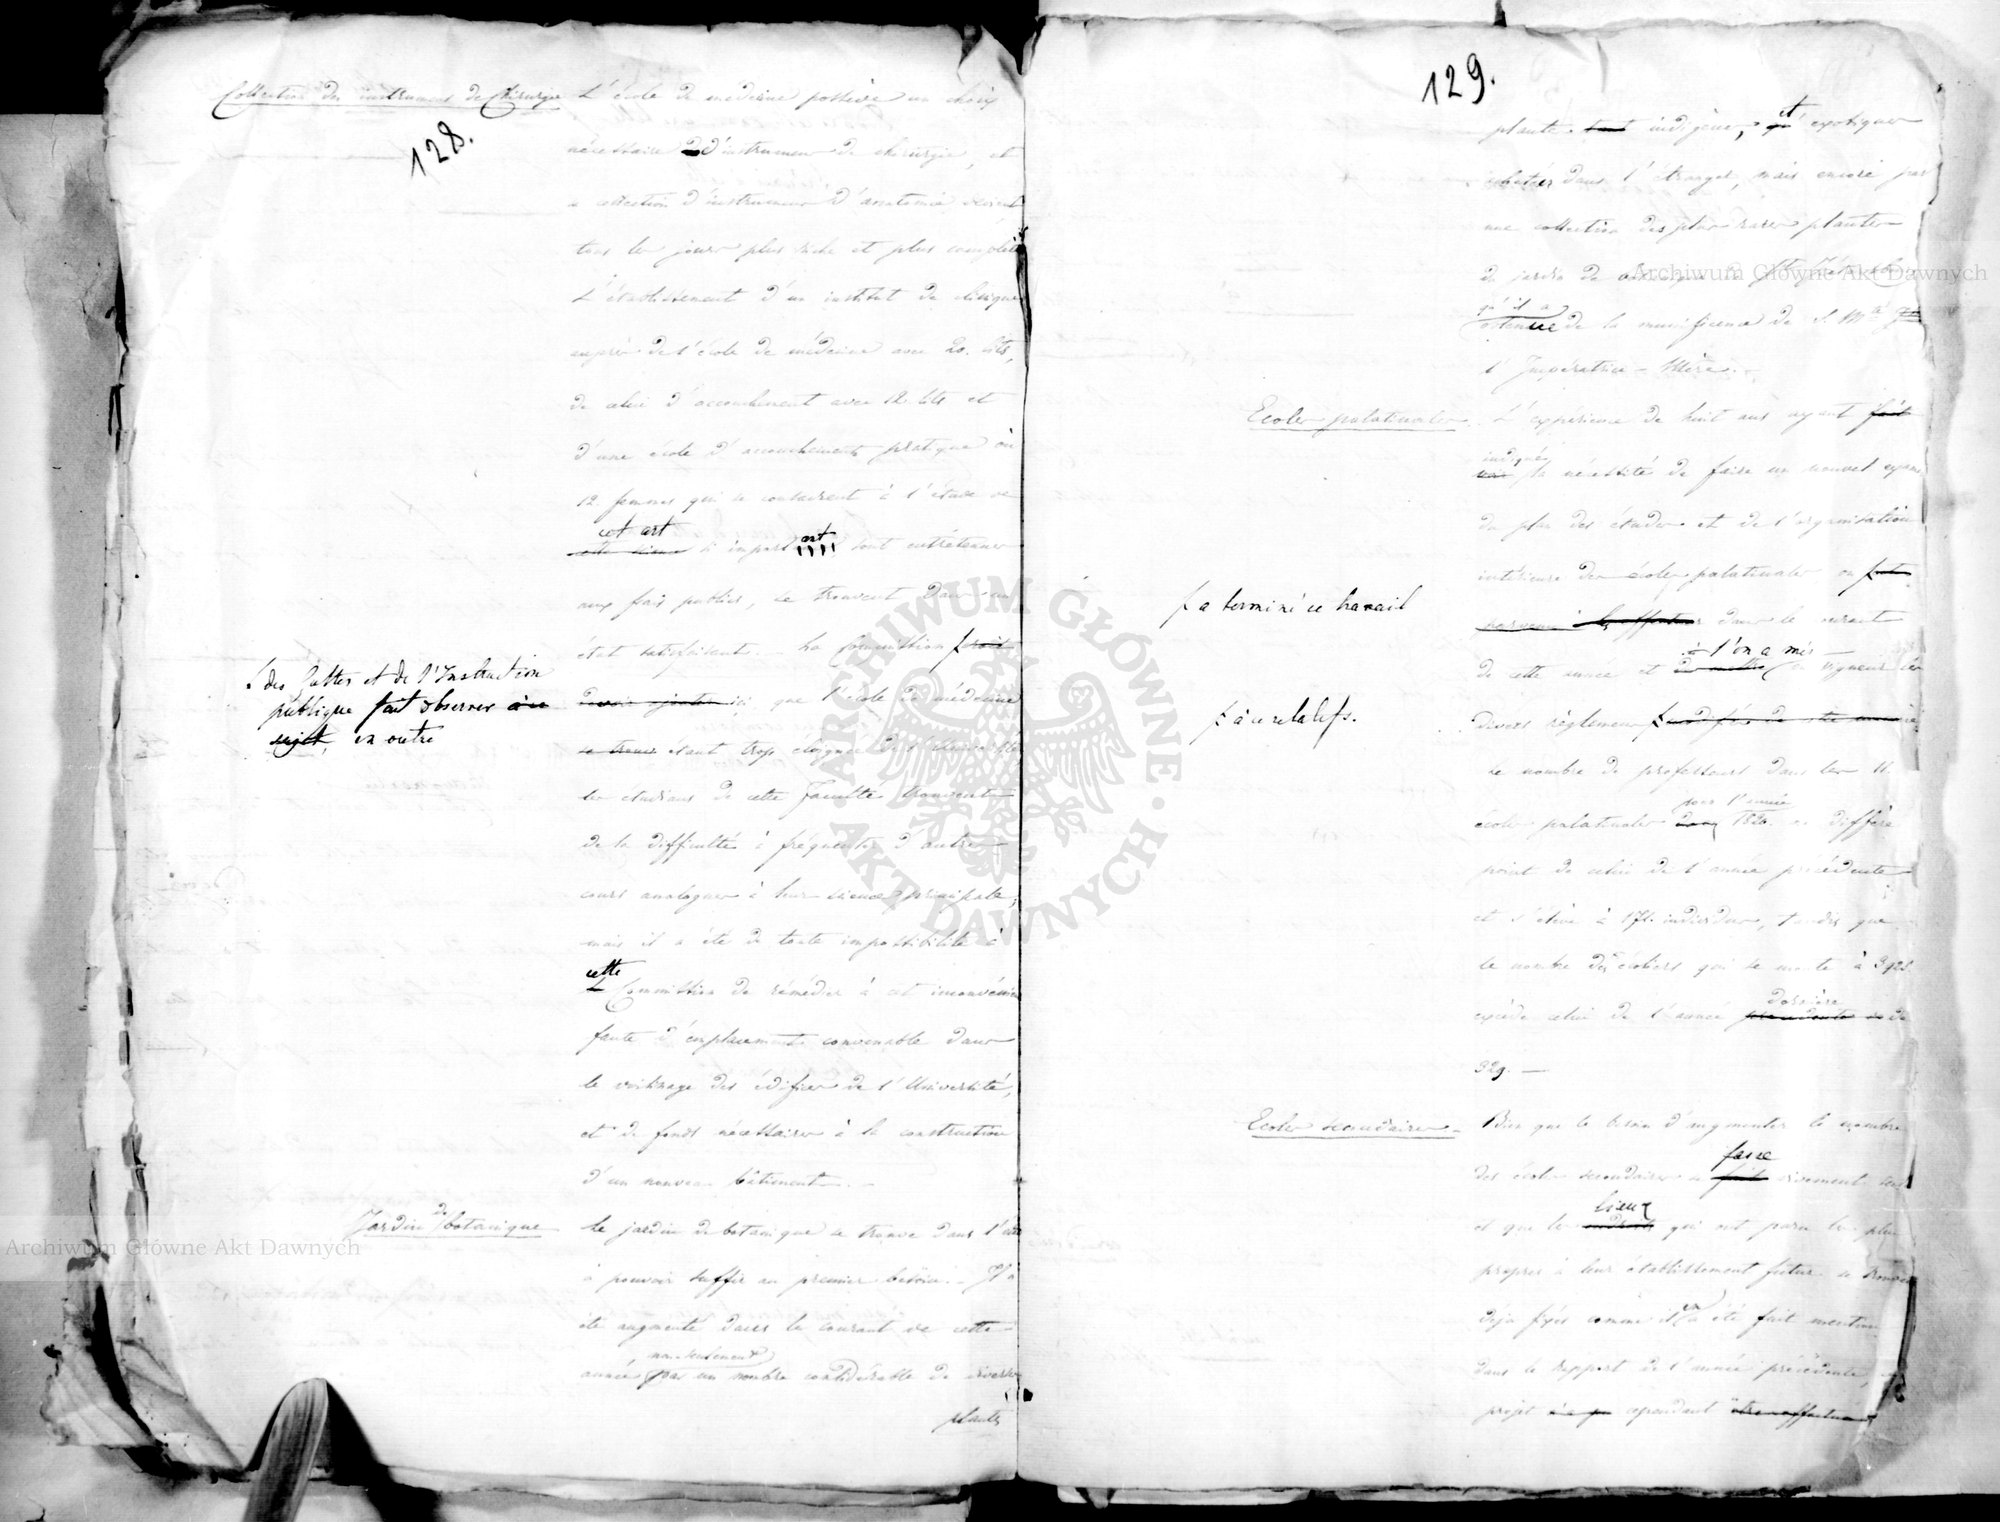 128.
Collection des instrumens de Chirurgie
L'école de médecine possède un choix
nécessaire d'instrumens de chirurgie, et
a collection d'instrumens d'anatomie devient
tous les jours plus riche et plus complète
L'établissement d'un institut de clinique
auprès de l'école de médecine avec 20. lits,
de celui d'accouchement avec 12 lits et
d'une école d'accouchement pratique où
12. femmes qui se consacrent à l'étude de
cet art
si important sont entretenues
aux frais publics, se trouvent dans un
état satisfaisant. - La Commission
des Cultes et de l'Instruction
publique fait observer
sujet, en outre
devoir ajouter ici que l'école de médecine
se trouv étant trop éloignée de l'Université
les étudians de cette Faculté trouvent
de la difficulté à fréquenter d'autres
cours analogues à leur science principale,
mais il a été de toute impossibilité à
cette
Commission de rémédier à cet inconvénient
faute d'emplacement convenable dans
le voisinage des édifices de l'Université,
et de fonds nécessaires à la construction
d'un nouveau bâtiment. -
Jardin de botanique
Le jardin de botanique se trouve dans l'état
à pouvoir suffir au premier besoin. - Il a
été augmenté dans le courant de cette
non-seulement
année par un nombre considérable de diverses
plantes
129.
plantes tant indigènes, et exotiques
achetées dans l'étranger, mais encore par
une collection des plus rares plantes
du jardin de botanique de
qu'il a
obtenue de la munificence de S. Mté
l'Impératrice - Mère. -
Ecoles palatinales.
L'expérience de huit ans ayant fait
indiqué
voir la nécessité de faire un nouvel examen
du plan des études et de l'organisation
intérieure des écoles palatinales, on
a terminé ce travail
parvenu à les effectuer dans le courant
l'on a mis
de cette année et de mettre en vigueur les
à ce relatifs.
divers règlemens
Le nombre de professeurs dans les 11.
pour l'année
écoles palatinales dans 1820. ne diffère
point de celui de l'année précédente
et s'élève à 171. individus, tandis que
le nombre des écoliers qui se monte à 3925.
dernière
excède celui de l'année précédente de
329. -
Ecoles secondaires -
Bien que le besoin d'augmenter le nombre
fasse
des écoles secondaires se fait vivement sentir
lieux
et que les endroits qui ont paru les plus
propres à leur établissement futur se trouvent
déja fixés comme il en a été fait mention
dans le rapport de l'année précédente,
projet n'a pu cependant être effectué
Archiwum Główne Akt Dawnych
Archiwum Główne Akt Dawnych
ARCHIWUM GŁÓWNE
AKT DAWNYCH